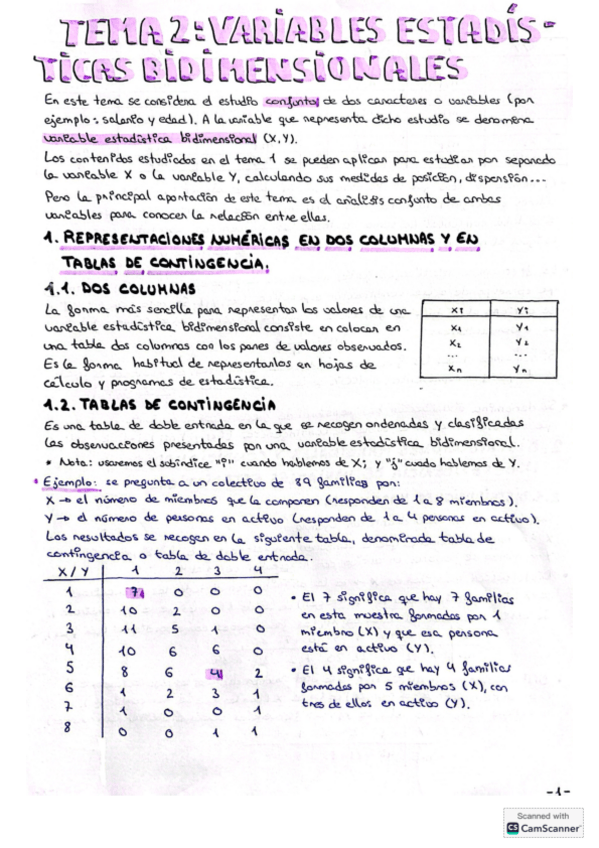 TEMA 2: VARIABLES ESTADÍS-
TICAS BIDIMENSIONALES
En este tema se considera el estudio conjunto de dos caracteres o variables (por
ejemplo: salario y edad). A la variable que representa dicho estudio se denomina
variable estadística bidimensional (X, Y).
Los contenidos estudiados en el tema 1 se pueden aplicar para estudiar por separado
la variable X o la variable Y, calculando sus medidas de posición, dispersión...
Pero la principal aportación de este tema es el análisis conjunto de ambas
variables para conocer la relación entre ellas.
1. REPRESENTACIONES NUMÉRICAS EN DOS COLUMNAS Y EN
TABLAS DE CONTINGENCIA.
1.1. DOS COLUMNAS
La forma más sencilla para representar los valores de una
variable estadística bidimensional consiste en colocar en
una tabla dos columnas con los pares de valores observados.
Es la forma habitual de representarlos en hojas de
cálculo y programas de estadística.
xi yi
x1 y1
x2 y2
... ...
xn yn
1.2. TABLAS DE CONTINGENCIA
Es una tabla de doble entrada en la que se recogen ordenadas y clasificadas
las observaciones presentadas por una variable estadística bidimensional.
* Nota: usaremos el subíndice "i" cuando hablemos de X; y "j" cuado hablemos de Y.
• Ejemplo: se pregunta a un colectivo de 89 familias por:
X → el número de miembros que la componen (responden de 1 a 8 miembros).
Y → el número de personas en activo (responden de 1 a 4 personas en activo).
Los resultados se recogen en la siguiente tabla, denominada tabla de
contingencia o tabla de doble entrada.
X/Y 1 2 3 4
1 7 0 0 0
2 10 2 0 0
3 11 5 1 0
4 10 6 6 0
5 8 6 4 2
6 1 2 3 1
7 1 0 0 1
8 0 0 1 1
• El 7 significa que hay 7 familias
en esta muestra formadas por 1
miembro (X) y que esa persona
está en activo (Y).
• El 4 significa que hay 4 familias
formadas por 5 miembros (X), con
tres de ellos en activo (Y).
-1-
Scanned with
CS CamScanner